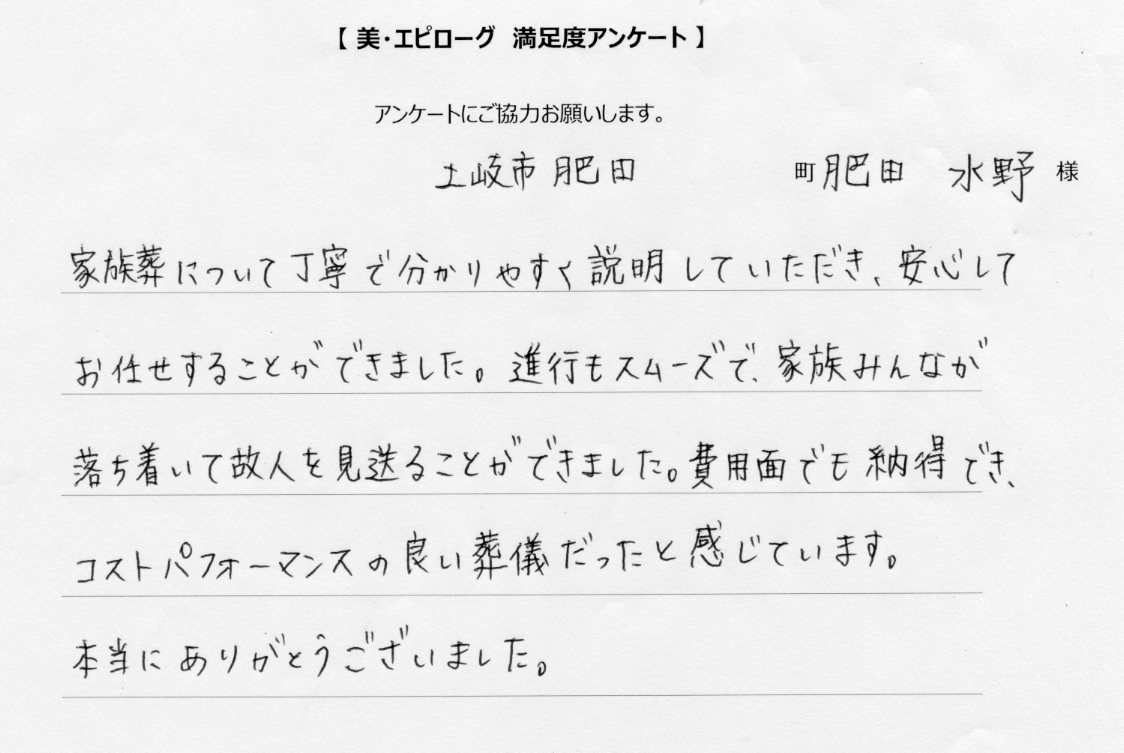 【 美・エピローグ 満足度アンケート 】
アンケートにご協力お願いします。
土岐市肥田 町肥田 水野 様
家族葬について丁寧で分かりやすく説明していただき、安心して
お任せすることができました。進行もスムーズで、家族みんなが
落ち着いて故人を見送ることができました。費用面でも納得でき、
コストパフォーマンスの良い葬儀だったと感じています。
本当にありがとうございました。